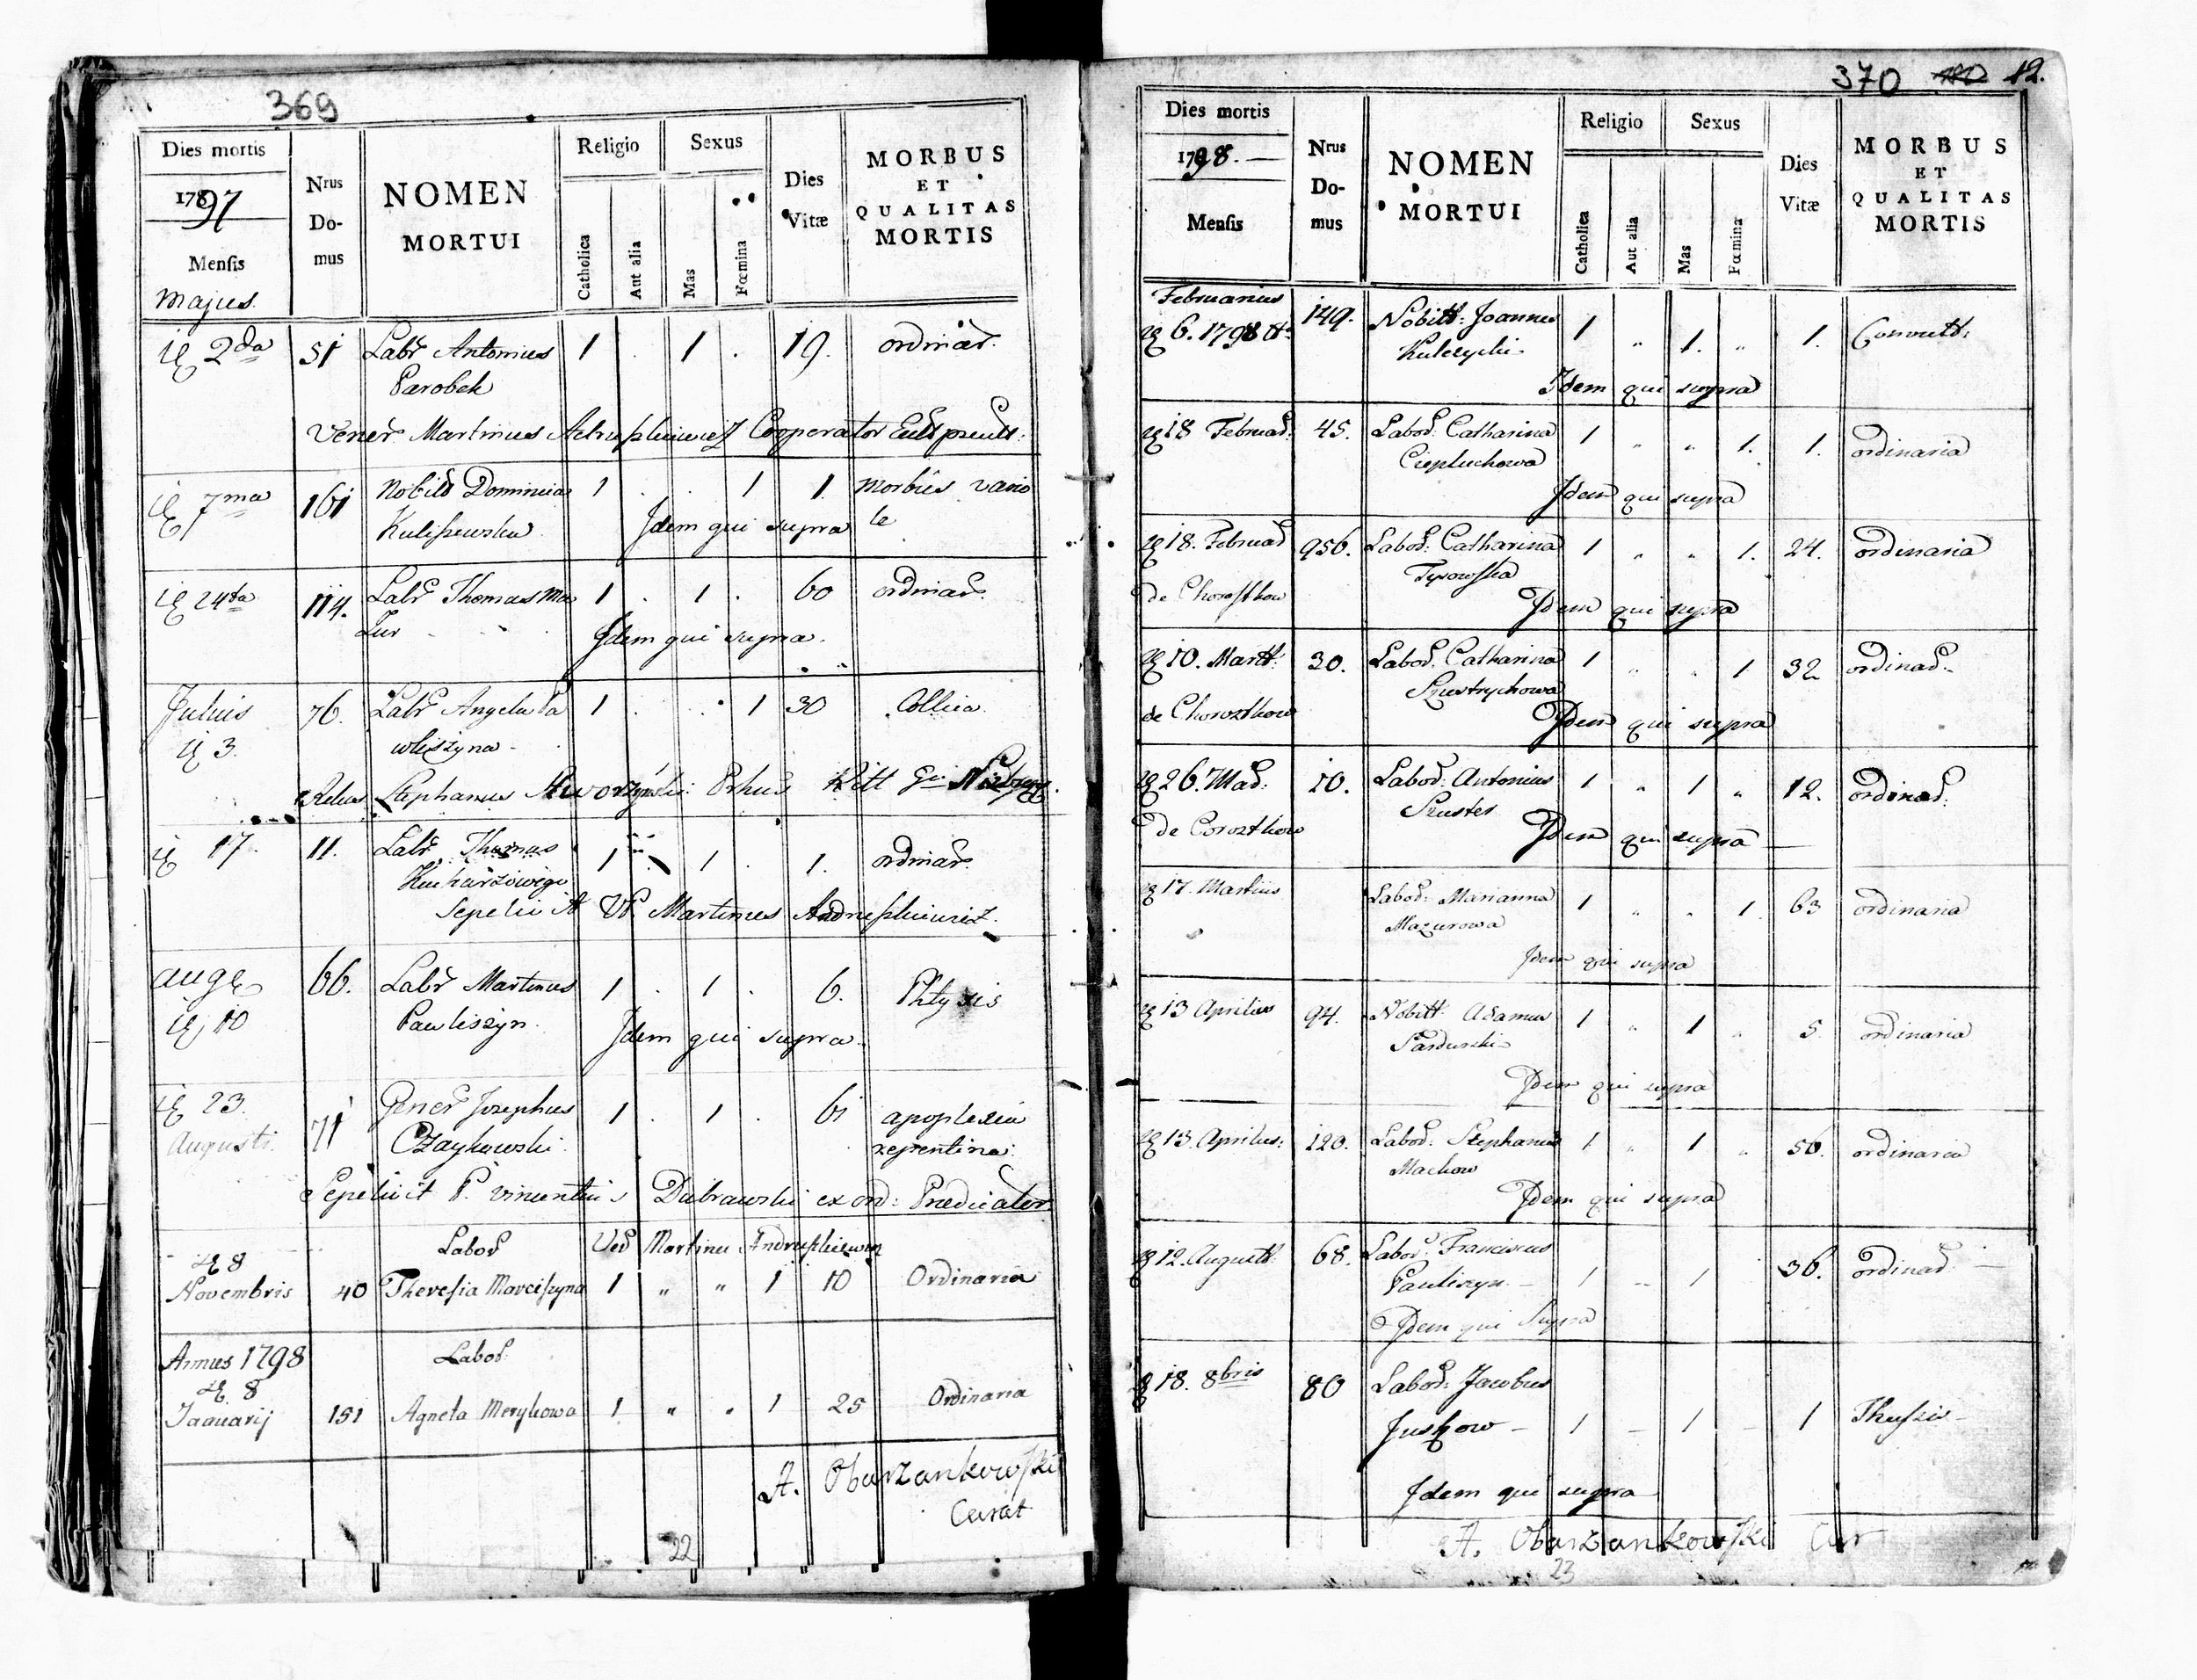 369
Dies mortis
1797
Mensis
Majus.
Nrus
Do-
mus
NOMEN
MORTUI
Religio
Catholica
Aut alia
Sexus
Mas
Fœmina
Dies
Vitæ
MORBUS
ET
QUALITAS
MORTIS
2da 51 Labr Antonius 1 . 1 . 19. ordinar.
Parobek
Vener Martinus Cooperator
7ma 161 Nobilis Dominica 1 . . 1 1. Morbus vario
Kuliszewska Idem qui supra le
24ta 114. Labr Thomas Ma 1 . 1 . 60 ordinar.
zur Idem qui supra.
Julius 76. Labr Angela Pa 1 . . 1 30 Collica
3. wliszyna
Stephanus
17. 11. Labr Thomas 1 . 1 . 1. ordinar.
Sepelivit VP Martinus Andruszkiewicz.
Aug 66. Labr Martinus 1 . 1 . 6. Phtysis
10 Pawliszyn. Idem qui supra
23. 71 Gener Josephus 1 . 1 . 61 apoplexia
Augusti. Czaykowski. repentina.
Sepelivit P. Vincentius Dubrawski ex ord: Prædicator
8 Labor Martinus Andruszkiewicz
Novembris 40 Theresia Marciszyna 1 " " 1 10 Ordinaria
Annus 1798 Labor:
8
Januarij 151 Agneta Merykowa 1 " " 1 25 Ordinaria
A. Obarzankowski
Curat
22
370 12.
Dies mortis
1798.
Mensis
Nrus
Do-
mus
NOMEN
MORTUI
Religio
Catholica
Aut alia
Sexus
Mas
Fœmina
Dies
Vitæ
MORBUS
ET
QUALITAS
MORTIS
Februarius
6. 1798 149. Nobill: Joannes 1 " 1. " 1.
Kulczycki
Idem qui supra
18 Februar: 45. Labor: Catharina 1 " " 1. 1. ordinaria
Ciepluchowa
Idem qui supra
18. Februar 956. Labor: Catharina 1 " " 1. 24. ordinaria
de Chorostkow Tysowska
Idem qui supra
10. Martt: 30. Labor: Catharina 1 " " 1 32 ordinar.
de Chorostkow Szustrychowa
Idem qui supra
26. Mar: 10. Labor: Antonius 1 " 1 " 12. ordinar.
de Corostkow Szuster
Idem qui supra
17. Martius Labor: Marianna 1 " " 1. 63 ordinaria
Mazurowa
Idem qui supra
13 Aprilius 94. Nobill: Adamus 1 " 1 " 5 ordinaria
Idem qui supra
13. Aprilius: 120. Labor: Stephanus 1 " 1 " 56. ordinaria
Machow
Idem qui supra
12. Augusti 68. Labor: Franciscus
Pauliszyn 1 1 36. ordinar.
Idem qui Supra
18. 8bris 80 Labor: Jacobus
Juskow 1 – 1 – 1
Idem qui supra
A. Obarzankowski Cur
23